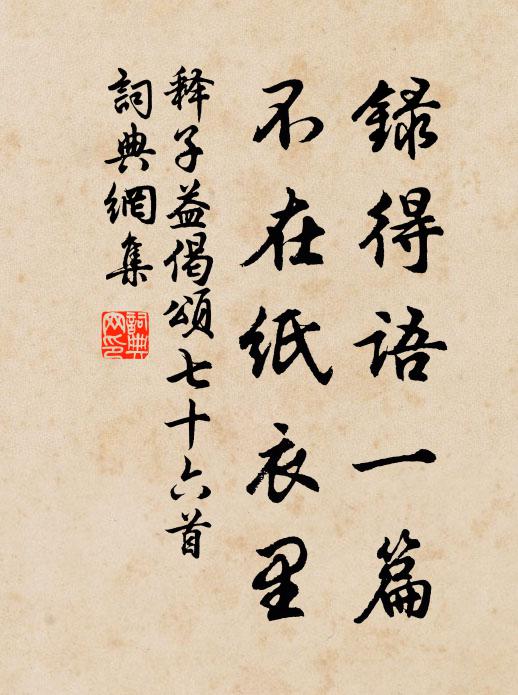 錄得語一篇
不在紙衣里
释子益偈頌七十六首
詞典網集
詞典網印